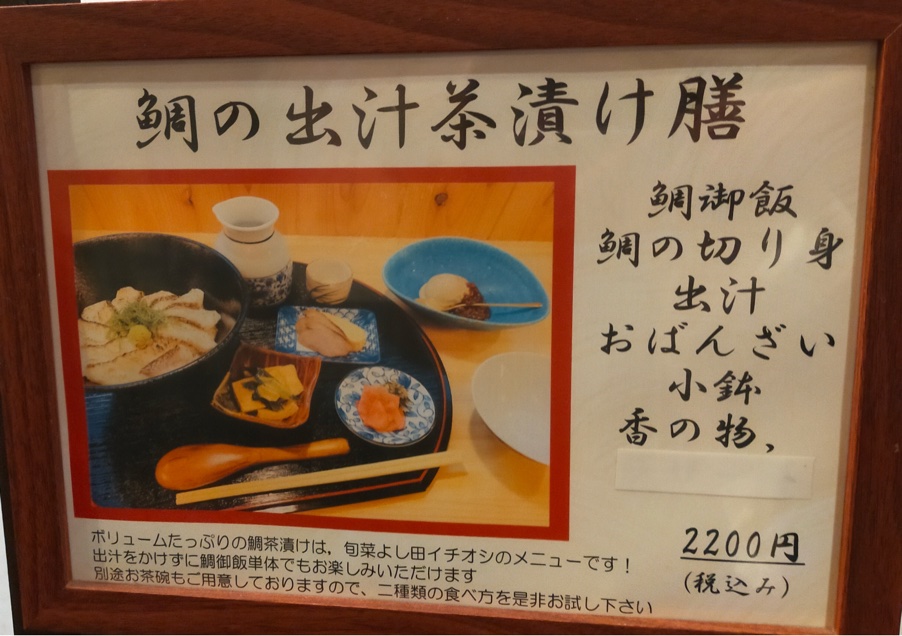 鯛の出汁茶漬け膳
鯛御飯
鯛の切り身
出汁
おばんざい
小鉢
香の物、
2200円
(税込み)
ボリュームたっぷりの鯛茶漬けは、旬菜よし田イチオシのメニューです！
出汁をかけずに鯛御飯単体でもお楽しみいただけます
別途お茶碗もご用意しておりますので、二種類の食べ方を是非お試し下さい